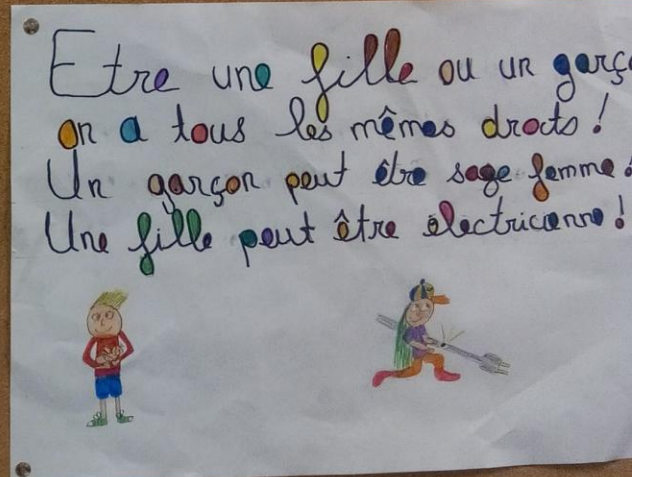 Etre une fille ou un garço
on a tous les mêmes droits !
Un garçon peut être sage femme !
Une fille peut être électricienne !